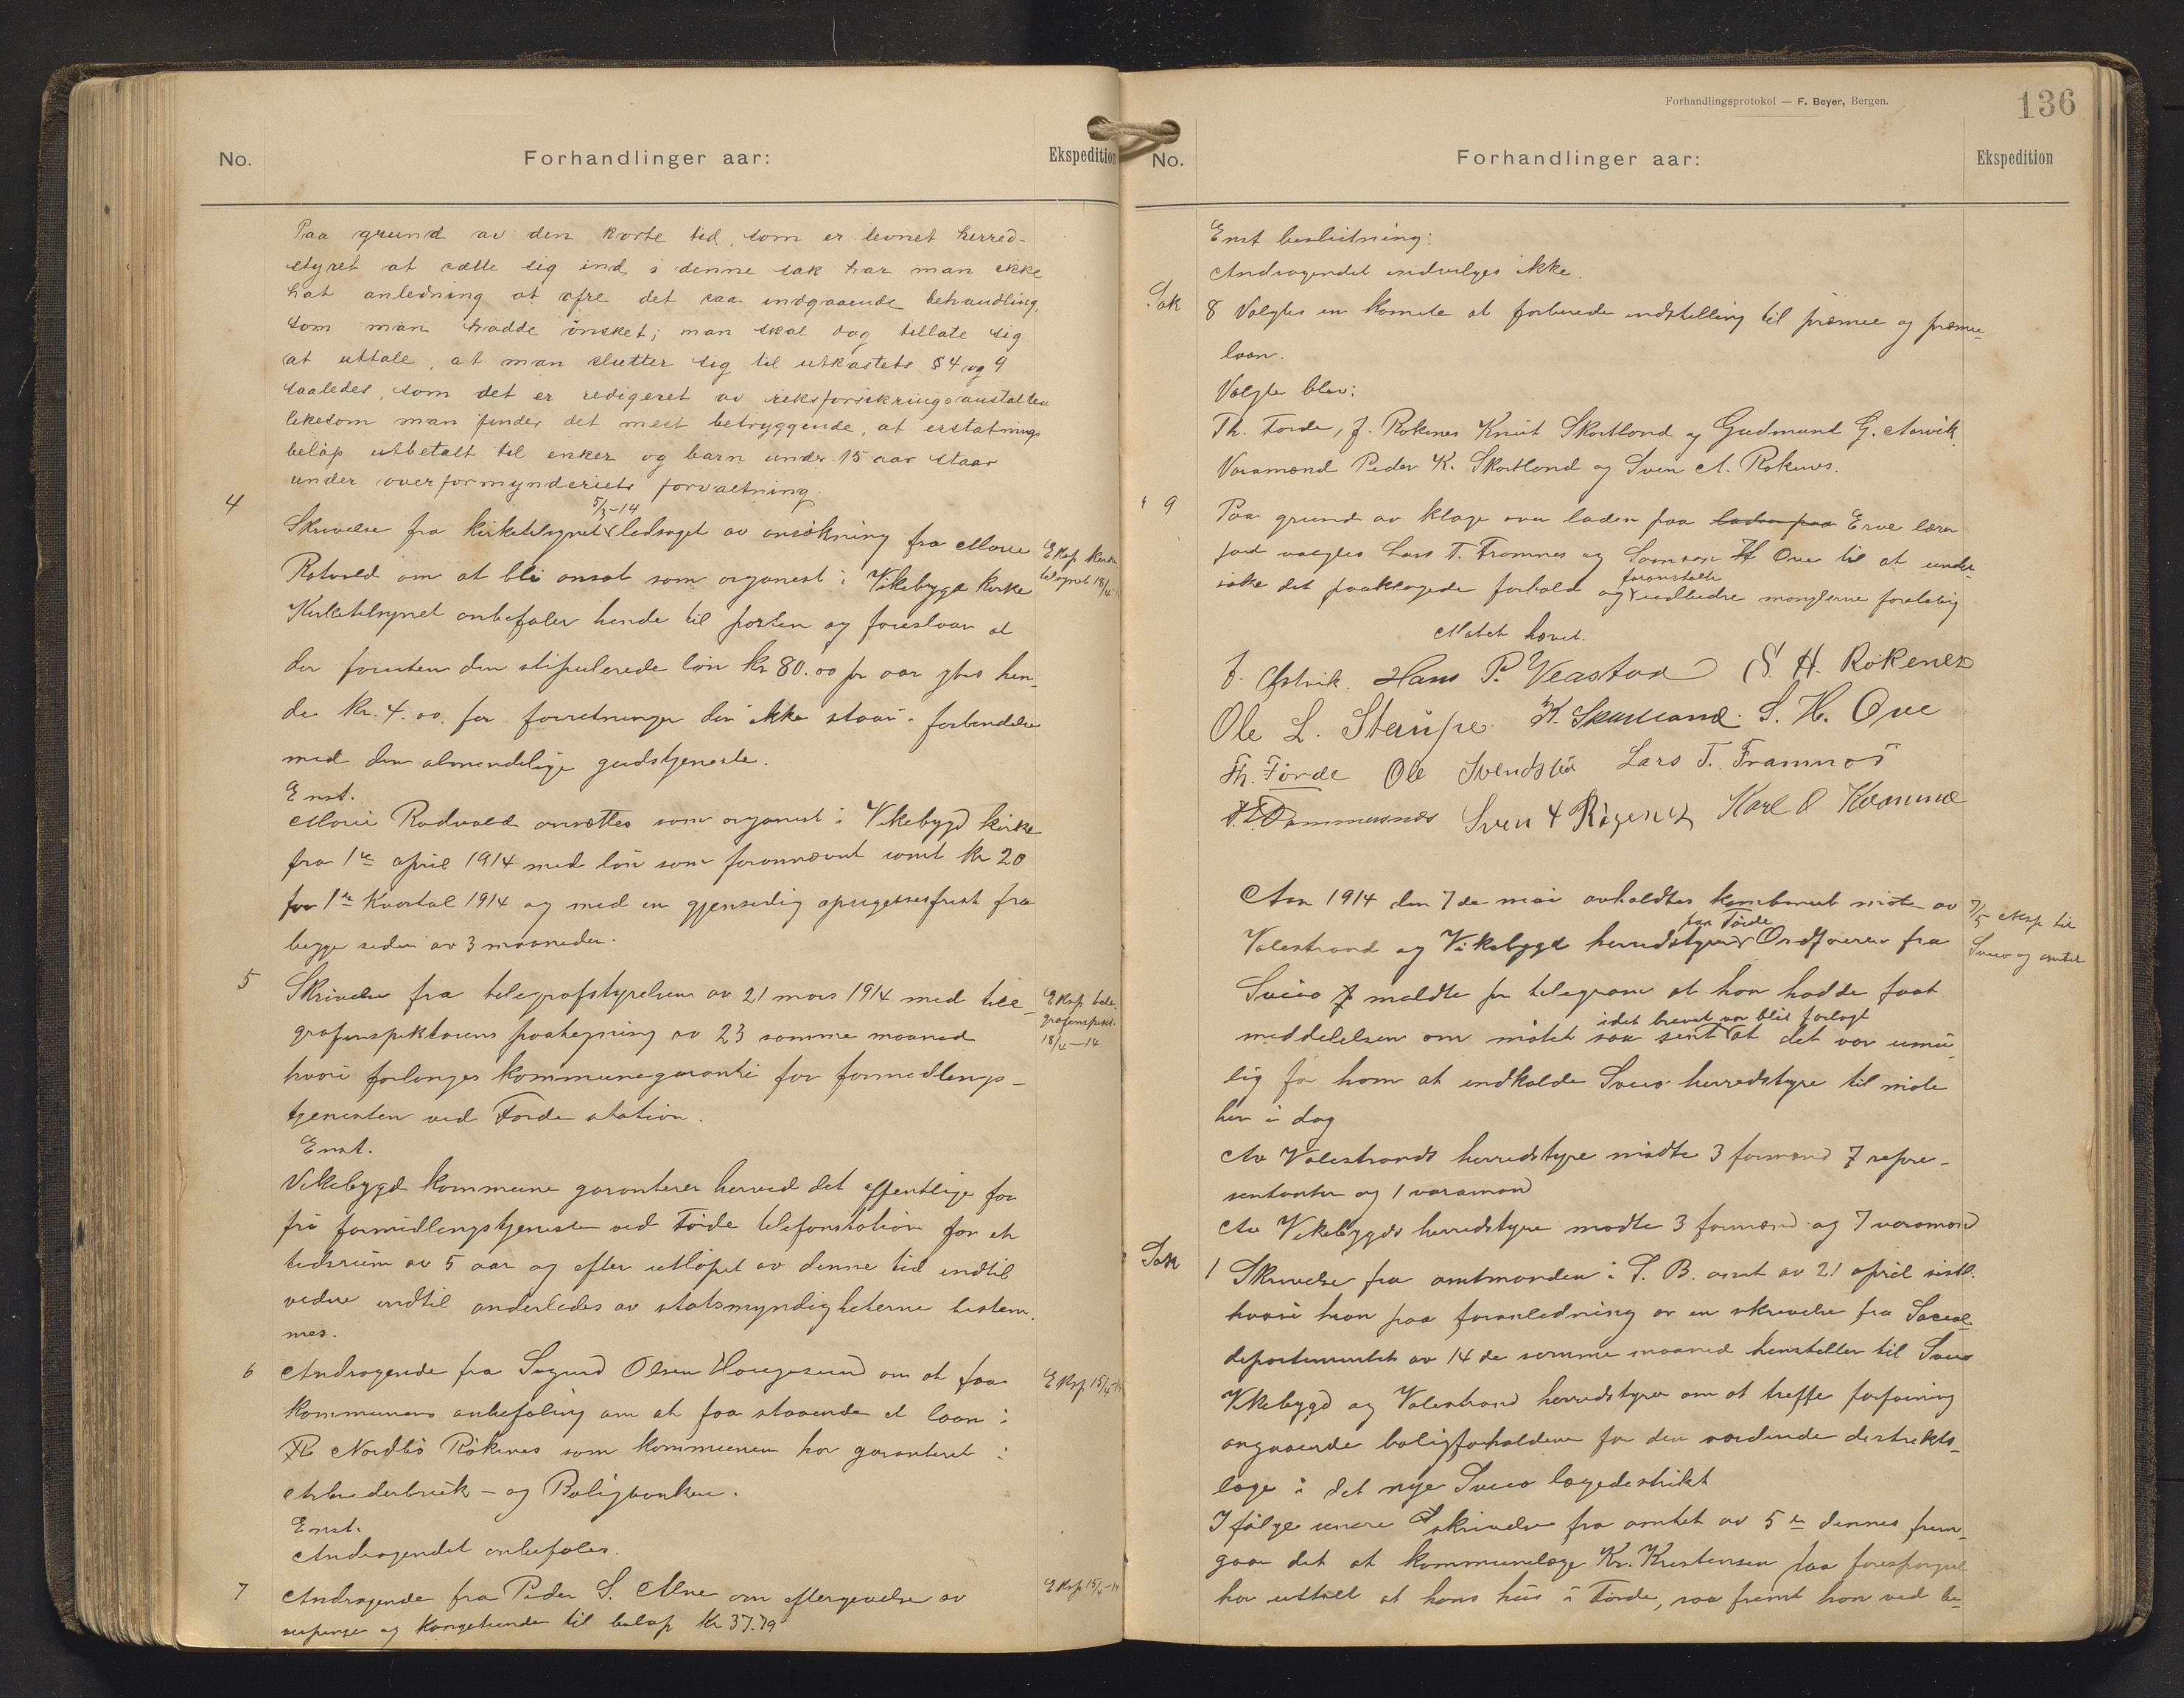 No.
Forhandlinger aar:
Ekspedition
Paa grund av den korte tid, som er levnet herred-
styret at sætte sig ind i denne sak har man ikke
hat anledning at ofre det saa indgaaende behandling,
som man hadde ønsket; man skal dog tillate sig
at uttale, at man slutter sig til utkastets § 4 og 9
saaledes, som det er redigeret av riksforsikringsanstalten
likesom man finder det mest betryggende, at erstatnings
beløp utbetalt til enker og barn under 15 aar staar
under overformynderiets forvaltning.
5/3-14
4 Skrivelse fra kirketilsynet ledsaget av ansøkning fra Marie
Eksp kirke
Rotvold om at bli ansat som organist i Vikebygd kirke
tilsynet 18/4
Kirketilsynet anbefaler hende til posten og foreslaar at
der foruten den stipulerede løn kr 80.00 pr aar ytes hen-
de kr. 4.00 for forretninger der ikke staar i forbindelse
med den almindelige gudstjeneste.
Enst.
Marie Rodvold ansættes som organist i Vikebygd kirke
fra 1ste april 1914 med løn som forannævnt samt kr 20
for 1ste Kvartal 1914 og med en gjensidig opsigelsesfrist fra
begge sider av 3 maaneder.
5 Skrivelse fra telegrafstyrelsen av 21 mars 1914 med tele-
Eksp tele-
grafinspektørens paategning av 23 samme maaned
grafinspekt.
18/4-14
hvori forlanges kommunegaranti for formidlings-
tjenesten ved Førde station.
Enst.
Vikebygd kommune garanterer herved det offentlige for
fri formidlingstjeneste ved Førde telefonstation for et
tidsrum av 5 aar og efter utløpet av denne tid indtil
videre indtil anderledes av statsmyndigheterne bestem-
mes.
6 Andragende fra Sigurd Olsen Haugesund om at faa
Eksp 15/4-14
kommunens anbefaling om at faa staaende et laan i
Nordbø Røkenes som kommunen har garanteret i
Arbeiderbruk- og Boligbanken.
Enst.
Andragendet anbefales.
7 Andragende fra Peder S. Alne om eftergivelse av
Eksp 15/4-14
og Kongetiende til beløp kr 37.79
Forhandlingsprotokol — F. Beyer, Bergen.
136
No.
Forhandlinger aar:
Ekspedition
Enst beslutning:
Andragendet indvilges ikke.
Sak 8 Valgtes en komite at forberede indstilling til præmie og præmie-
laan.
Valgte blev:
Th. Førde, J. Røkenes Knut Skartland og Gudmund G. Aarvik.
Varamænd Peder K. Skartland og Sven A. Røkenes.
" 9 Paa grund av klage over laden paa laden paa Erve lærer
jord valgtes Lars T. Framnes og Samson H Ove til at under-
foranstalte
søke det paaklagede forhold og utbedre manglerne foreløbig
Møtet hævet.
J. Østvik. Hans P. Veastad S. H. Røkenes
Ole L. Staupe K. Skartland. S. H. Ove
Th. Førde Ole Svendsbø Lars T. Framnes
Sven A Røgenes Karl O
Aar 1914 den 7de mai avholdtes kombinert møte av
7/5 eksp til
paa Førde
Valestrand og Vikebygd herredstyrer Ordføreren fra
Sveio og amtet
Sveio meldte pr telegram at han hadde faat
idet brevet var blit forlagt
meddelelsen om møtet saa sent at det var umu-
lig for ham at indkalde Sveio herredstyre til møte
her i dag
Av Valestrands herredstyre mødte 3 formænd 7 repre-
sentanter og 1 varamand
Av Vikebygds herredstyre mødte 3 formænd og 7 varamænd
Sak 1 Skrivelse fra amtmanden i S. B. amt av 21 april sistl.
hvori han paa foranledning av en skrivelse fra Social-
departementet av 14de samme maaned henstiller til Sveio
Vikebygd og Valestrand herredstyrer om at træffe forføining
angaaende boligforholdene for den vordende distrikts-
læge i det nye Sveio lægedistrikt
Ifølge senere skrivelse fra amtet av 5te dennes frem-
gaar det at kommunelæge Kr. Kristensen paa forespørsel
har uttalt at hans hus i Førde, saa fremt han ved be-